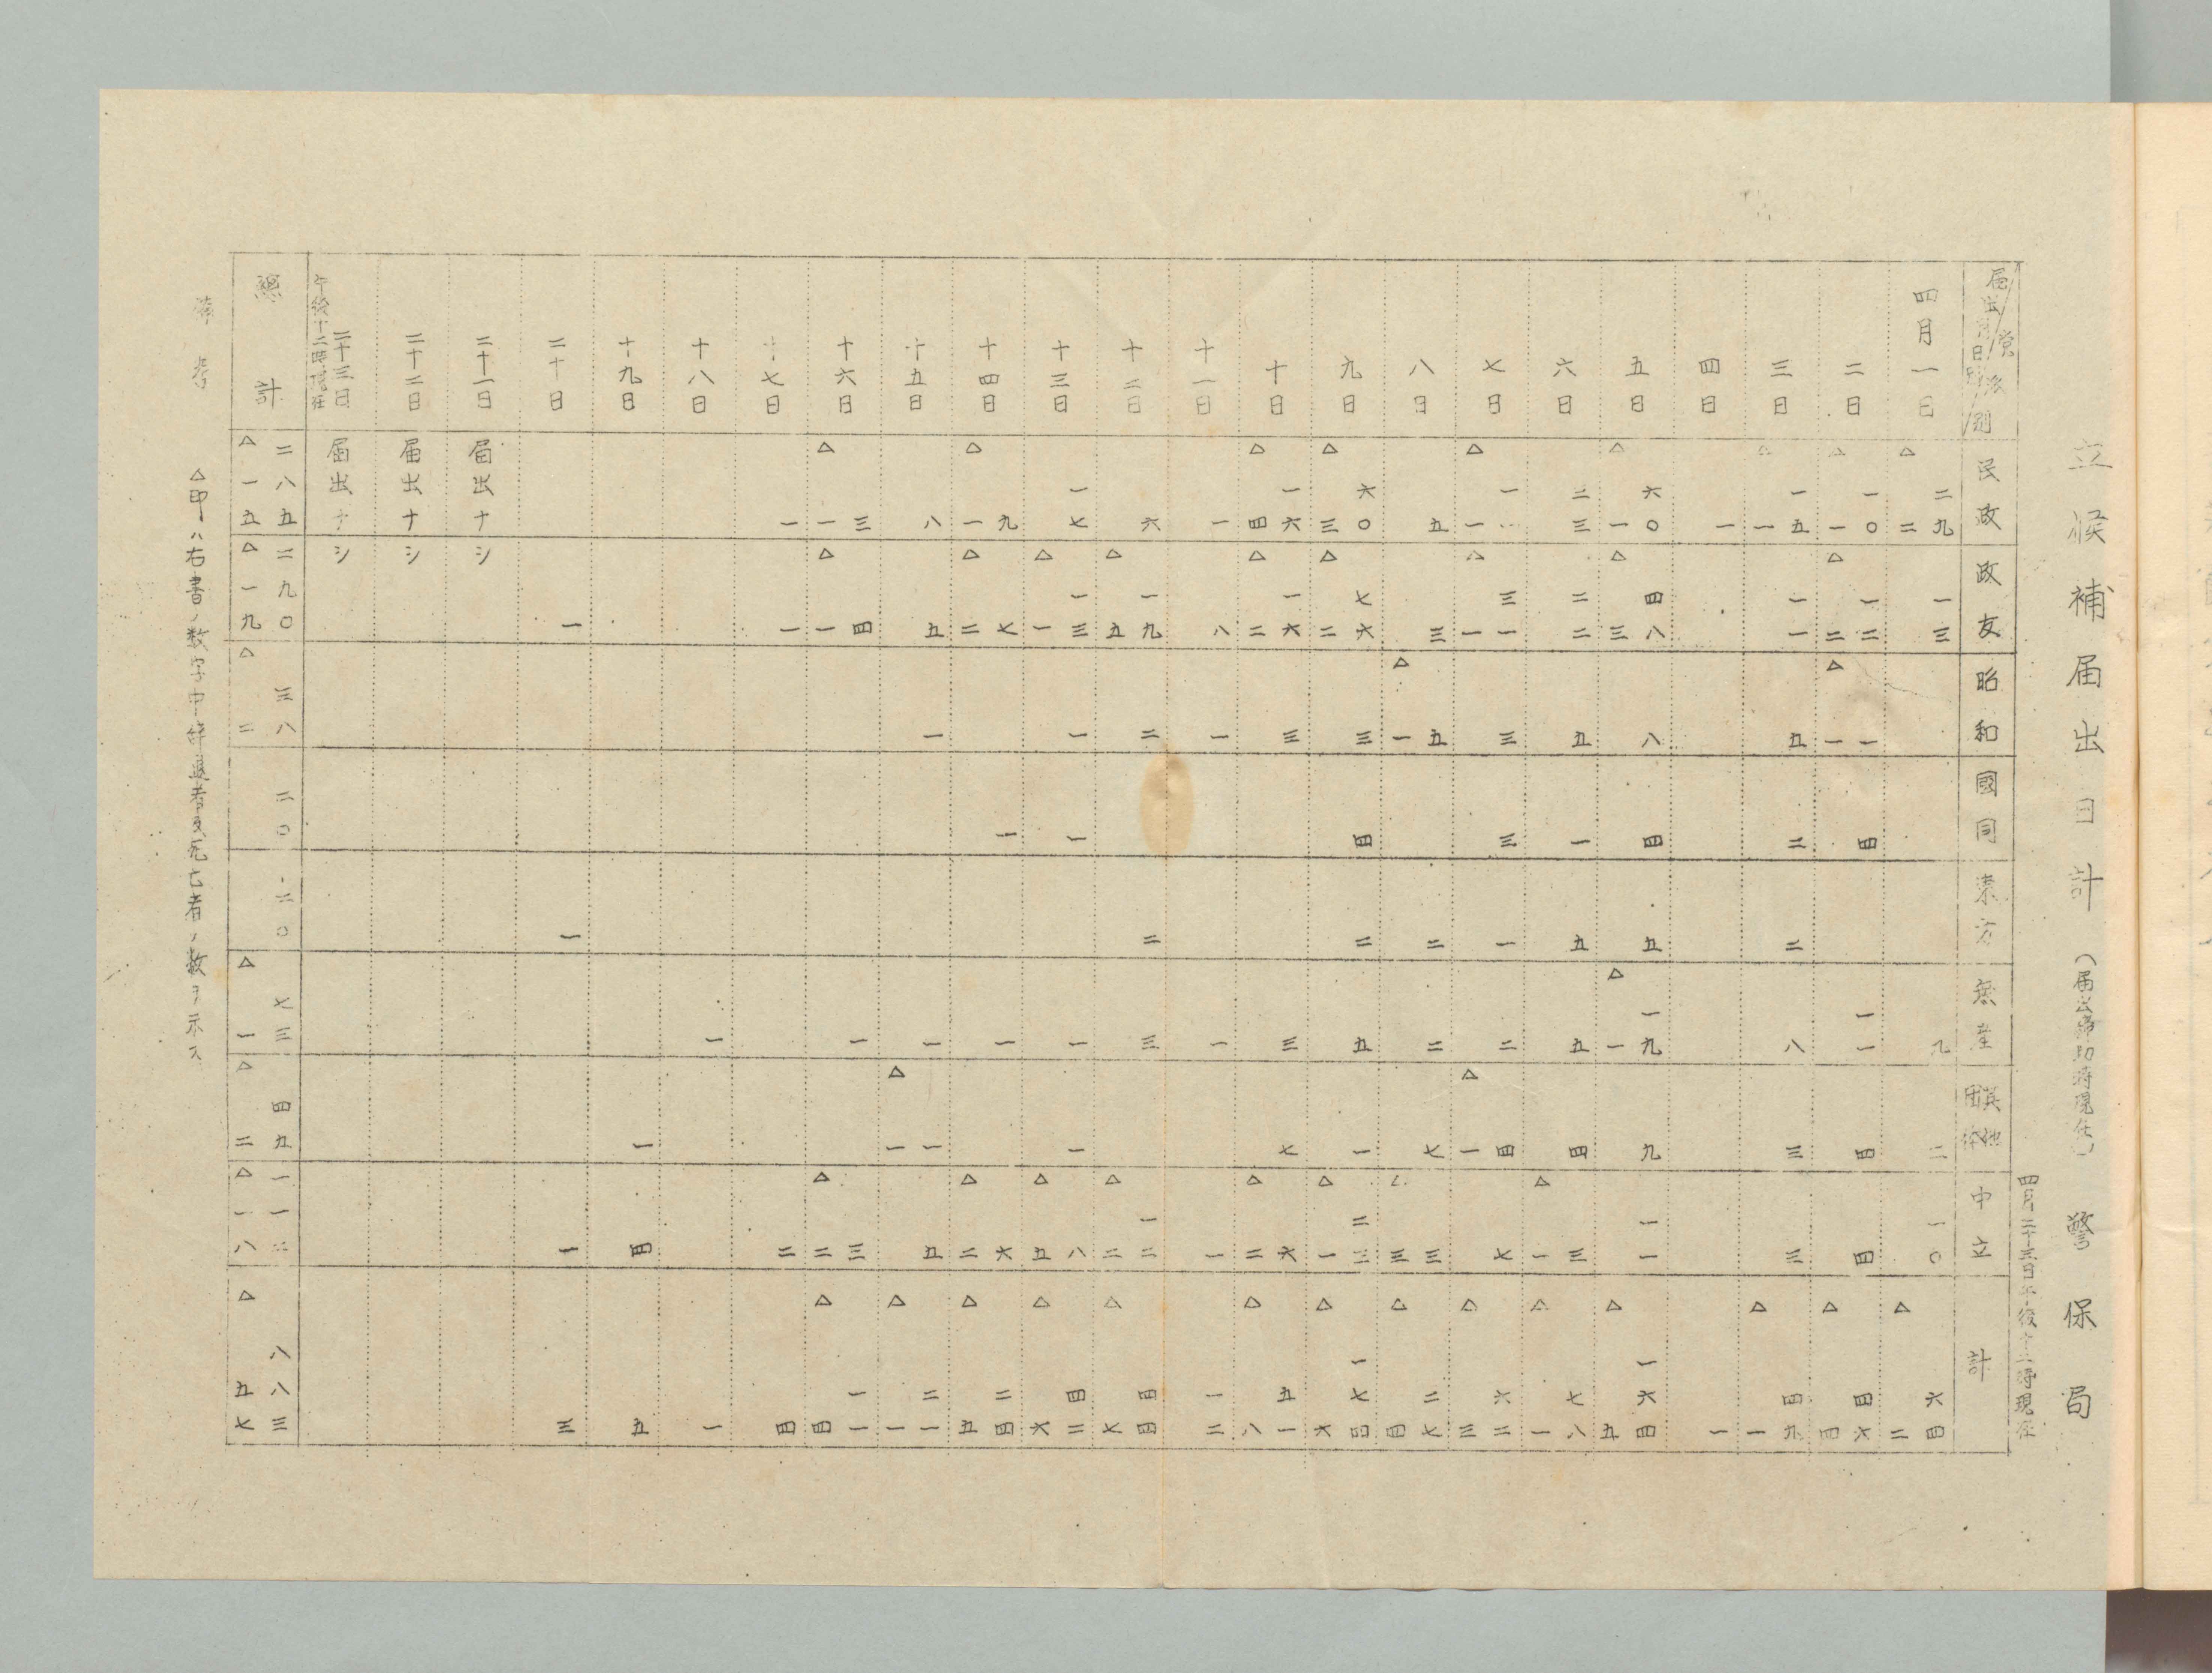 立候補届出日計（届出締切時現在） 警保局
四月二十三日午後十二時現在
届出月日別 党派別 民政 政友 昭和 國同 東方 無産 其他団体 中立 計
四月一日 二九 △二 一三 九 二 一〇 六四 △二
二日 一〇 △一 一二 △二 一 △一 四 一一 四 四 四六 △四
三日 一五 △一 一一 五 二 二 八 三 三 四九 △一
四日 一 一
五日 六〇 △一 四八 △三 八 四 五 一九 △一 九 一一 一六四 △五
六日 二三 二二 五 一 五 五 四 三 △一 七八 △一
七日 一一 △一 三一 △一 三 三 一 二 四 △一 七 六二 △三
八日 五 三 五 △一 二 二 七 三 △三 二七 △四
九日 六〇 △三 七六 △二 三 四 二 五 一 二三 △一 一七四 △六
十日 一六 △四 一六 △二 三 三 七 六 △二 五一 △八
十一日 一 八 一 一 一 一二
十二日 六 一九 △五 二 二 三 一二 △二 四四 △七
十三日 一七 一三 △一 一 一 一 一 八 △五 四二 △六
十四日 九 △一 七 △二 一 一 六 △二 二四 △五
十五日 八 五 一 一 一 △一 五 二一 △一
十六日 三 △一 四 △一 一 三 △二 一一 △四
十七日 一 一 二 四
十八日 一 一
十九日 一 四 五
二十日 一 一 一 三
二十一日 届出ナシ
二十二日 届出ナシ
二十三日午後十二時現在 届出ナシ
總計 二八五 △一五 二九〇 △一九 三八 △二 二〇 二〇 七三 △一 四九 △二 一一二 △一八 八八三 △五七
備考 △印ハ右書ノ数字中辞退者及死亡者ノ数ヲ示ス